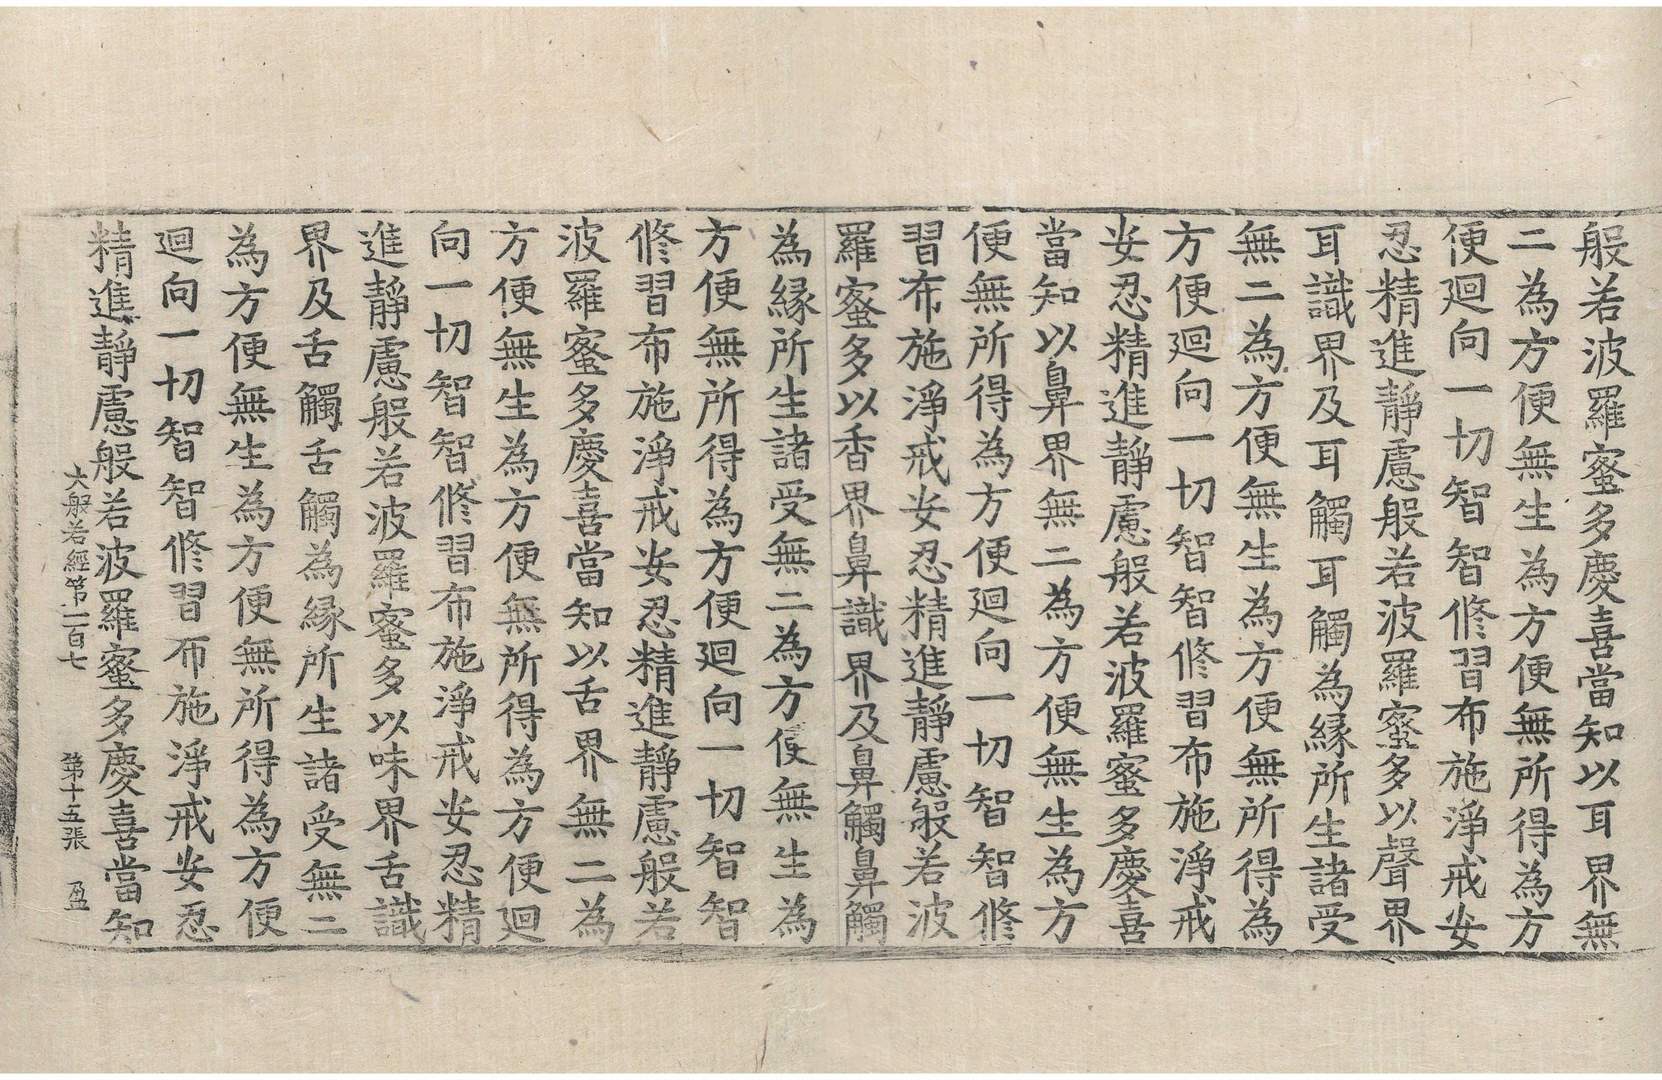 般若波羅蜜多慶喜當知以耳界無
二為方便無生為方便無所得為方
便迴向一切智智修習布施淨戒安
忍精進靜慮般若波羅蜜多以聲界
耳識界及耳觸耳觸為縁所生諸受
無二為方便無生為方便無所得為
方便迴向一切智智修習布施淨戒
安忍精進靜慮般若波羅蜜多慶喜
當知以鼻界無二為方便無生為方
便無所得為方便迴向一切智智修
習布施淨戒安忍精進靜慮般若波
羅蜜多以香界鼻識界及鼻觸鼻觸
為縁所生諸受無二為方便無生為
方便無所得為方便迴向一切智智
修習布施淨戒安忍精進靜慮般若
波羅蜜多慶喜當知以舌界無二為
方便無生為方便無所得為方便迴
向一切智智修習布施淨戒安忍精
進靜慮般若波羅蜜多以味界舌識
界及舌觸舌觸為縁所生諸受無二
為方便無生為方便無所得為方便
迴向一切智智修習布施淨戒安忍
精進靜慮般若波羅蜜多慶喜當知
大般若經第二百七 第十五張 盈